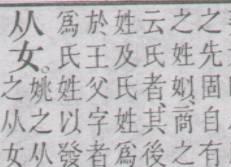 之先固自有
之姓姒商之
云氏者其後
姓及氏姓爲
於王父字者
爲氏姓以發
从女。
姚之从
之从女